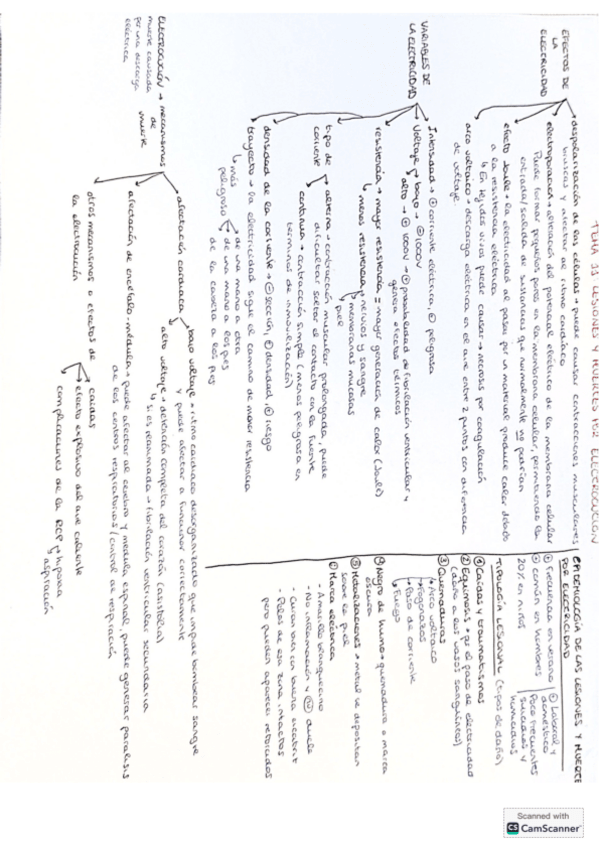 TEMA 11 LESIONES Y MUERTES POR ELECTROCUCIÓN
EFECTOS DE
LA
ELECTRICIDAD
despolarización de las células → puede causar contracciones musculares
bruscas y afectar al ritmo cardíaco
electroporación → alteración del potencial eléctrico de la membrana celular
Puede formar pequeños poros en la membrana celular, permitiendo la
entrada/salida de sustancias que normalmente no podrían
efecto Joule → la electricidad al pasar por un material produce calor debido
a la resistencia eléctrica
↳ En tejidos vivos puede causar → necrosis por coagulación
arco voltaico → descarga eléctrica en el aire entre 2 puntos con diferencia
de voltaje
VARIABLES DE
LA ELECTRICIDAD
Intensidad → ⊕ corriente eléctrica, ⊕ peligrosa
Voltaje → bajo → ⊖ 1000V
alto → ⊕ 1000V → ⊕ probabilidad de fibrilación ventricular y
genera efectos térmicos
resistencia → mayor resistencia = mayor generación de calor (Joule)
↳ menos resistencia → nervios y sangre
membranas mucosas
piel
tipo de
corriente
alterna → contracción muscular prolongada, puede
dificultar soltar el contacto con la fuente
continua → contracción simple (menos peligrosa en
términos de inmovilización)
densidad de la corriente → ⊖ sección, ⊕ densidad, ⊕ riesgo
trayecto → la electricidad sigue el camino de menor resistencia
↳ más
peligroso
de una mano a otra
de una mano a los pies
de la cabeza a los pies
ELECTROCUCIÓN → mecanismos
de
muerte
muerte causada
por una descarga
eléctrica
afectación cardíaca
bajo voltaje → ritmo cardíaco desorganizado que impide bombear sangre
y puede afectar a funcionar correctamente
alto voltaje → detención completa del corazón (asistolia)
↳ si es reanimado → fibrilación ventricular secundaria
afectación de encéfalo-médula → puede afectar al cerebro y médula espinal, puede generar parálisis
de los centros respiratorios (control de respiración)
otros mecanismos o efectos de
la electrocución
caídas
efecto explosivo del aire caliente
complicaciones de la RCP → hipoxia
aspiración
EPIDEMIOLOGÍA DE LAS LESIONES Y MUERTE
POR ELECTRICIDAD
⊕ frecuencia en verano
⊕ común en hombres
20% en niños
⊕ Laboral y
doméstico
Poco frecuentes
suicidios y
homicidios
TIPOLOGÍA LESIONAL (tipos de daño)
① Caídas y traumatismos
② Equimosis → por el paso de electricidad
(daño a los vasos sanguíneos)
③ Quemaduras
↳ Arco voltaico
Fogonazos
Paso de corriente
Fuego
④ Negro de humo → quemadura o marca
oscura
⑤ Metalizaciones → metal se depositan
sobre la piel
⑥ Marca eléctrica
- Amarillo blanquecino
- No inflamación y no duele
- Curan bien con buena cicatriz
- Pelos de esa zona intactos
pero pueden aparecer retorcidos
Scanned with
CS CamScanner